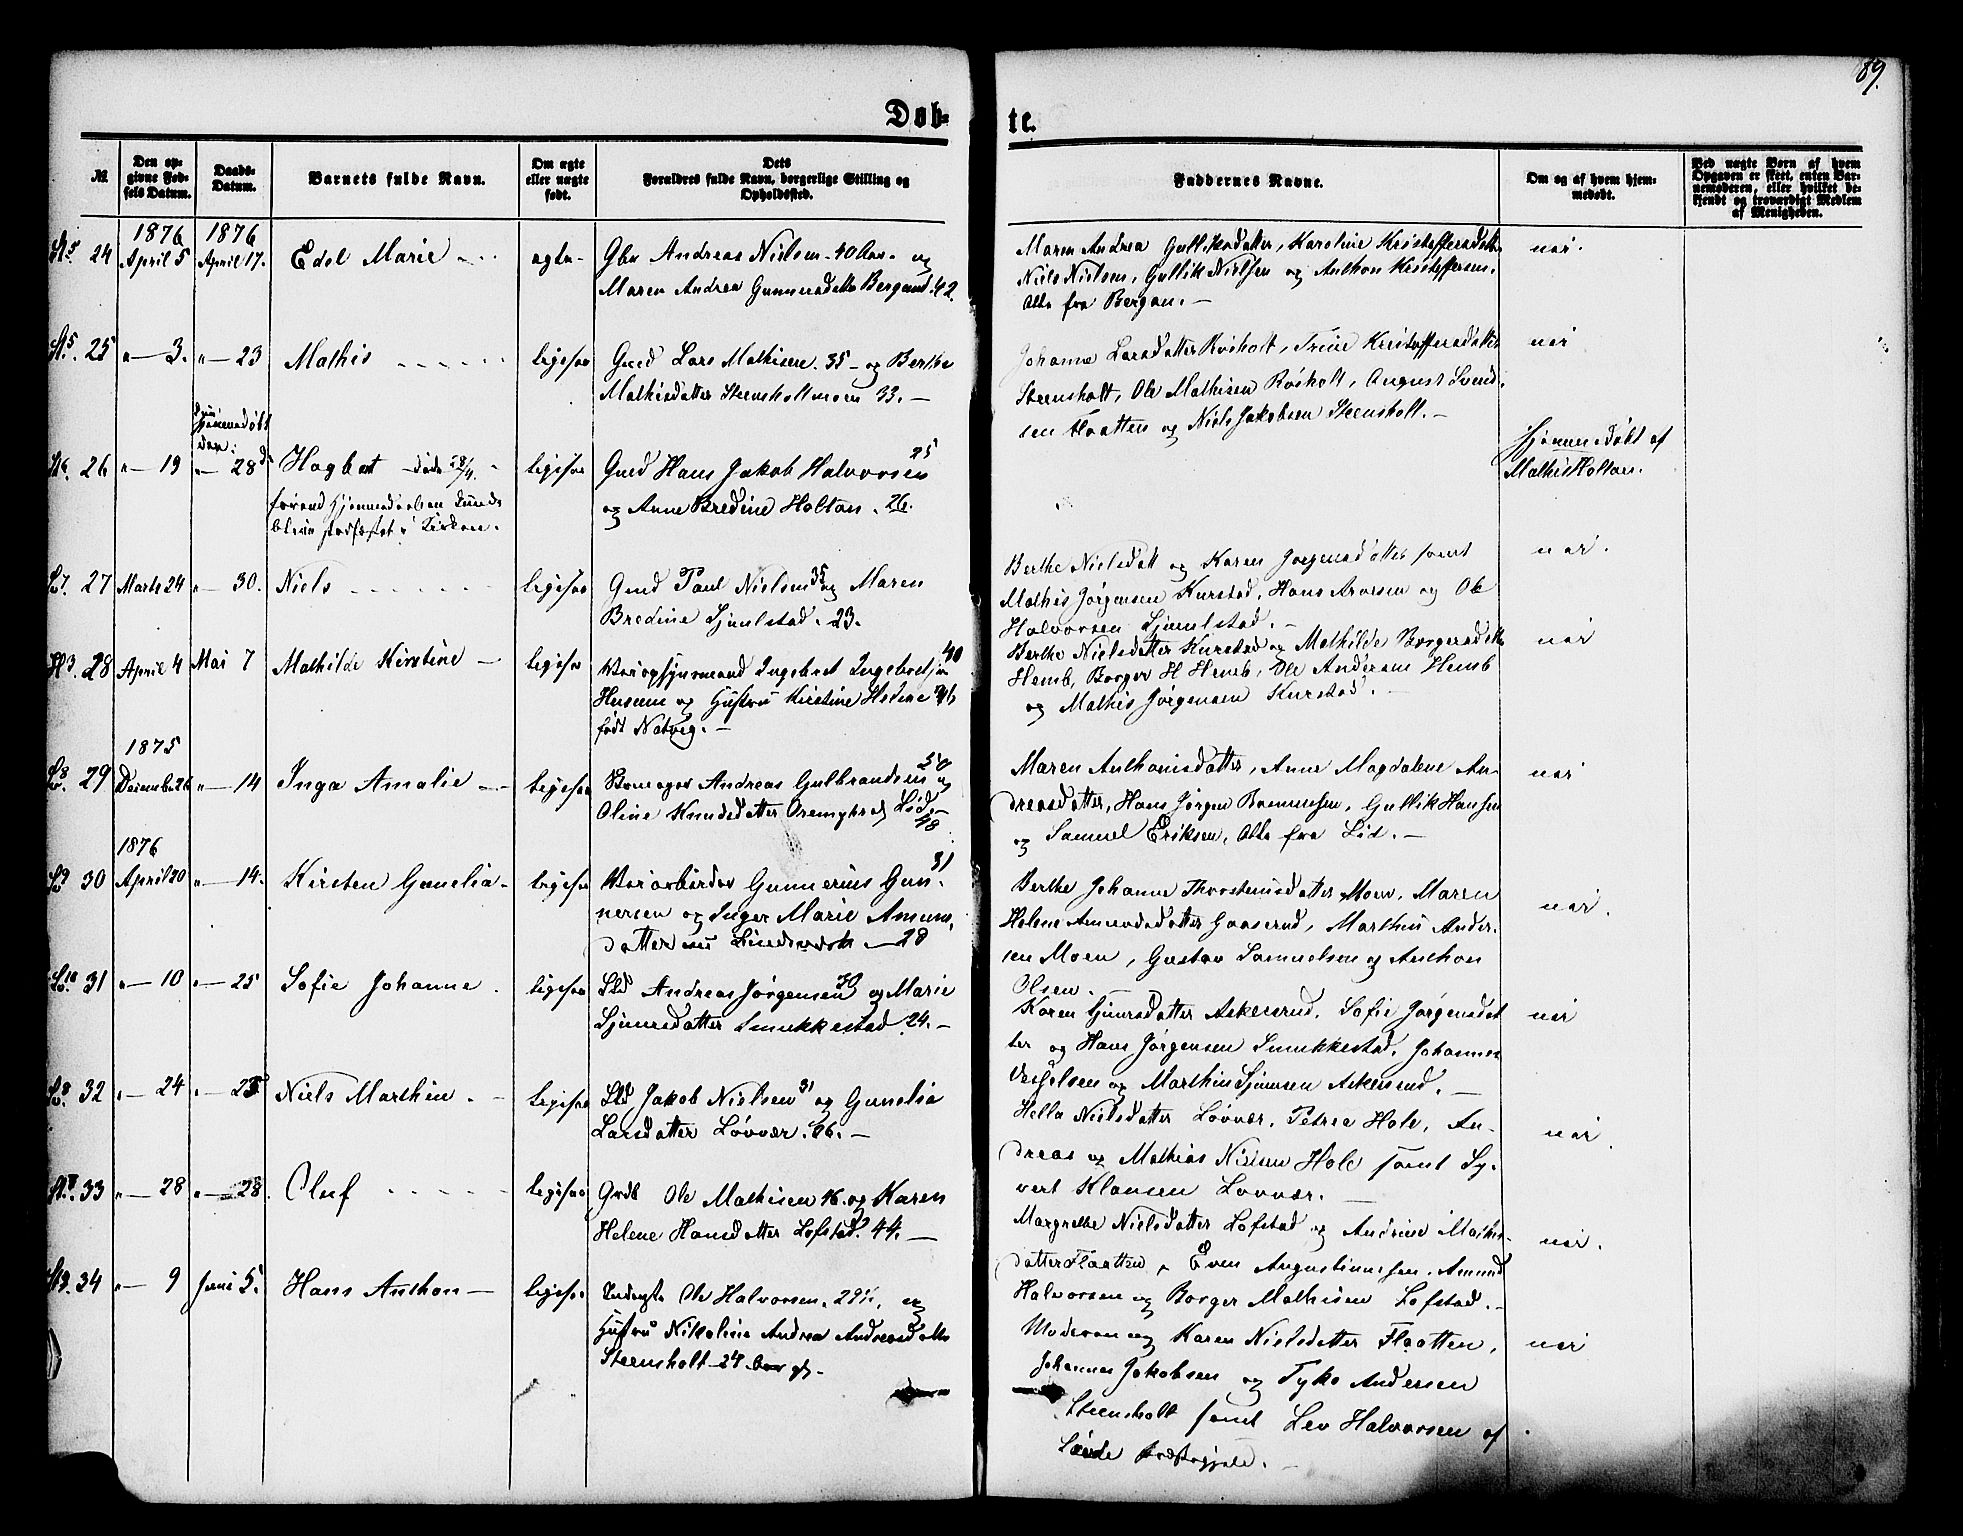 89.
Døb-
te.
№
Den op-
givne Fød-
sels Datum.
Daabs-
Datum.
Barnets fulde Navn.
Om ægte
eller uægte
født.
Dets
Forældres fulde Navn, borgerlige Stilling og
Opholdssted.
Faddernes Navne.
Om og af hvem hjem-
medøbt.
Ved uægte Børn af hvem
Opgaven er skeet, enten Bar-
nemoderen, eller hvilket be-
kjendt og troværdigt Medlem
af Menigheden.
1876
1876
24 April 5 April 17. Edel Marie ægte
Gbr Andreas Nielsen 40 og
Maren Andrea Gunnersdatte Bergan 42.
Maren Andrea Gulliksdatter, Karoline Kristoffersdatter
Niels Nielsen, Gullik Nielsen og Anthon Kristoffersen.
Alle fra Bergan. —
nei.
25 " — 3. " — 23 Mathis ligesaa
Gmd Lars Mathisen 35 — og Berthe
Mathisdatter Steensholtmoen 33. —
Johanne Larsdatter Røsholt, Trine Kristoffersdatter
Steensholt, Ole Mathisen Røsholt, August Svend-
sen Flaatten og Niels Jakobsen Steensholt. —
nei
Hjemmedøbt
den:
26 " — 19 " — 28d Hagbart — døde 28/4.
forend Hjemmedaaben kunde
blive stadfæstet i Kirken.
ligesaa
Gmd Hans Jakob Halvorsen 25
og Anne Bredine Holtan. 26.
Hjemmedøbt af
Mathis Holtan.
27 Marts 24 " — 30. Niels ligesaa
Gmd Paul Nielsen 35 og Maren
Bredine Sjuulstad. 23.
Berthe Nielsdatt og Karen Jørgensdatter samt
Mathis Jørgensen Kurstad, Hans Arvesen og Ole
Halvorsen Sjuulstad. —
nei.
28 April 4 Mai 7 Mathilde Kirstine — ligesaa
Veiopsynsmand Ingebret Ingebretsen 40
Husum og Hustru Kirstine Helene 36
født Natvig. —
Berthe Nielsdatter Kurstad og Mathilde Borgersdatter
Hemb, Borger H Hemb, Ole Andersen Hemb
og Mathis Jørgensen Kurstad. —
nei
1875
29 December 26 " — 14 Inga Amalie ligesaa
Andreas Gulbrandsen 50 og
Oline Knudsdatter Lid. —
48
Maren Anthonisdatter, Anne Magdalene An-
dreasdatter, Hans Jørgen Gullik Hansen
og Samuel Eriksen, Alle fra Lid. —
nei
1876
30 April 20 " — 14. Kirsten Gunelia — ligesaa
Veiarbeider Gunnerius Gun- 31
nersen og Inger Marie Amuns-
datter — 28
Berthe Johanne Thorstensdatter Moen, Maren
Helene Amundsdatter Gaaserud, Marthin Ander-
sen Moen, Gustav Samuelsen og Anthon
Olsen.
nei.
31 " — 10 " — 25 Sofie Johanne. ligesaa
Andreas Jørgensen 30 og Marie
Sjursdatter Smukkestad 24. —
Karen Sjursdatter Askerud, Sofie Jørgensdat-
ter og Hans Jørgensen Smukkestad, Johannes
og Marthin Sjursen Askerud. —
nei
32 " — 24 " — 25 Niels Marthin. ligesaa
Jakob Nielsen 31 og Gunelia
Larsdatter Løvvær. 26. —
Hella Nielsdatter Løvvær, Petrea Hole, An-
dreas og Mathias Nielsen Hole samt Sy-
vert Klausen Løvvær. —
nei.
33 " — 28 " — 28. Oluf ligesaa
Ole Mathisen 46. og Karen
Helene Hansdatter Lofstad. 44. —
Margrethe Nielsdatter Lofstad og Andrine Mathis-
datter Flaatten, Even Augustinussen, Amund
Halvorsen og Borger Mathisen Lofstad. —
nei.
34 " — 9 Juni 5. Hans Anthon — ligesaa
Inderste Ole Halvorsen. 29½, og
Hustru Nikoline Andrea Andreasdatter
Steensholt — 24
Moderen og Karen Nielsdatter Flaatten,
Johannes Jakobsen og Tyke Andersen
Steensholt samt Lev Halvorsen af
nei